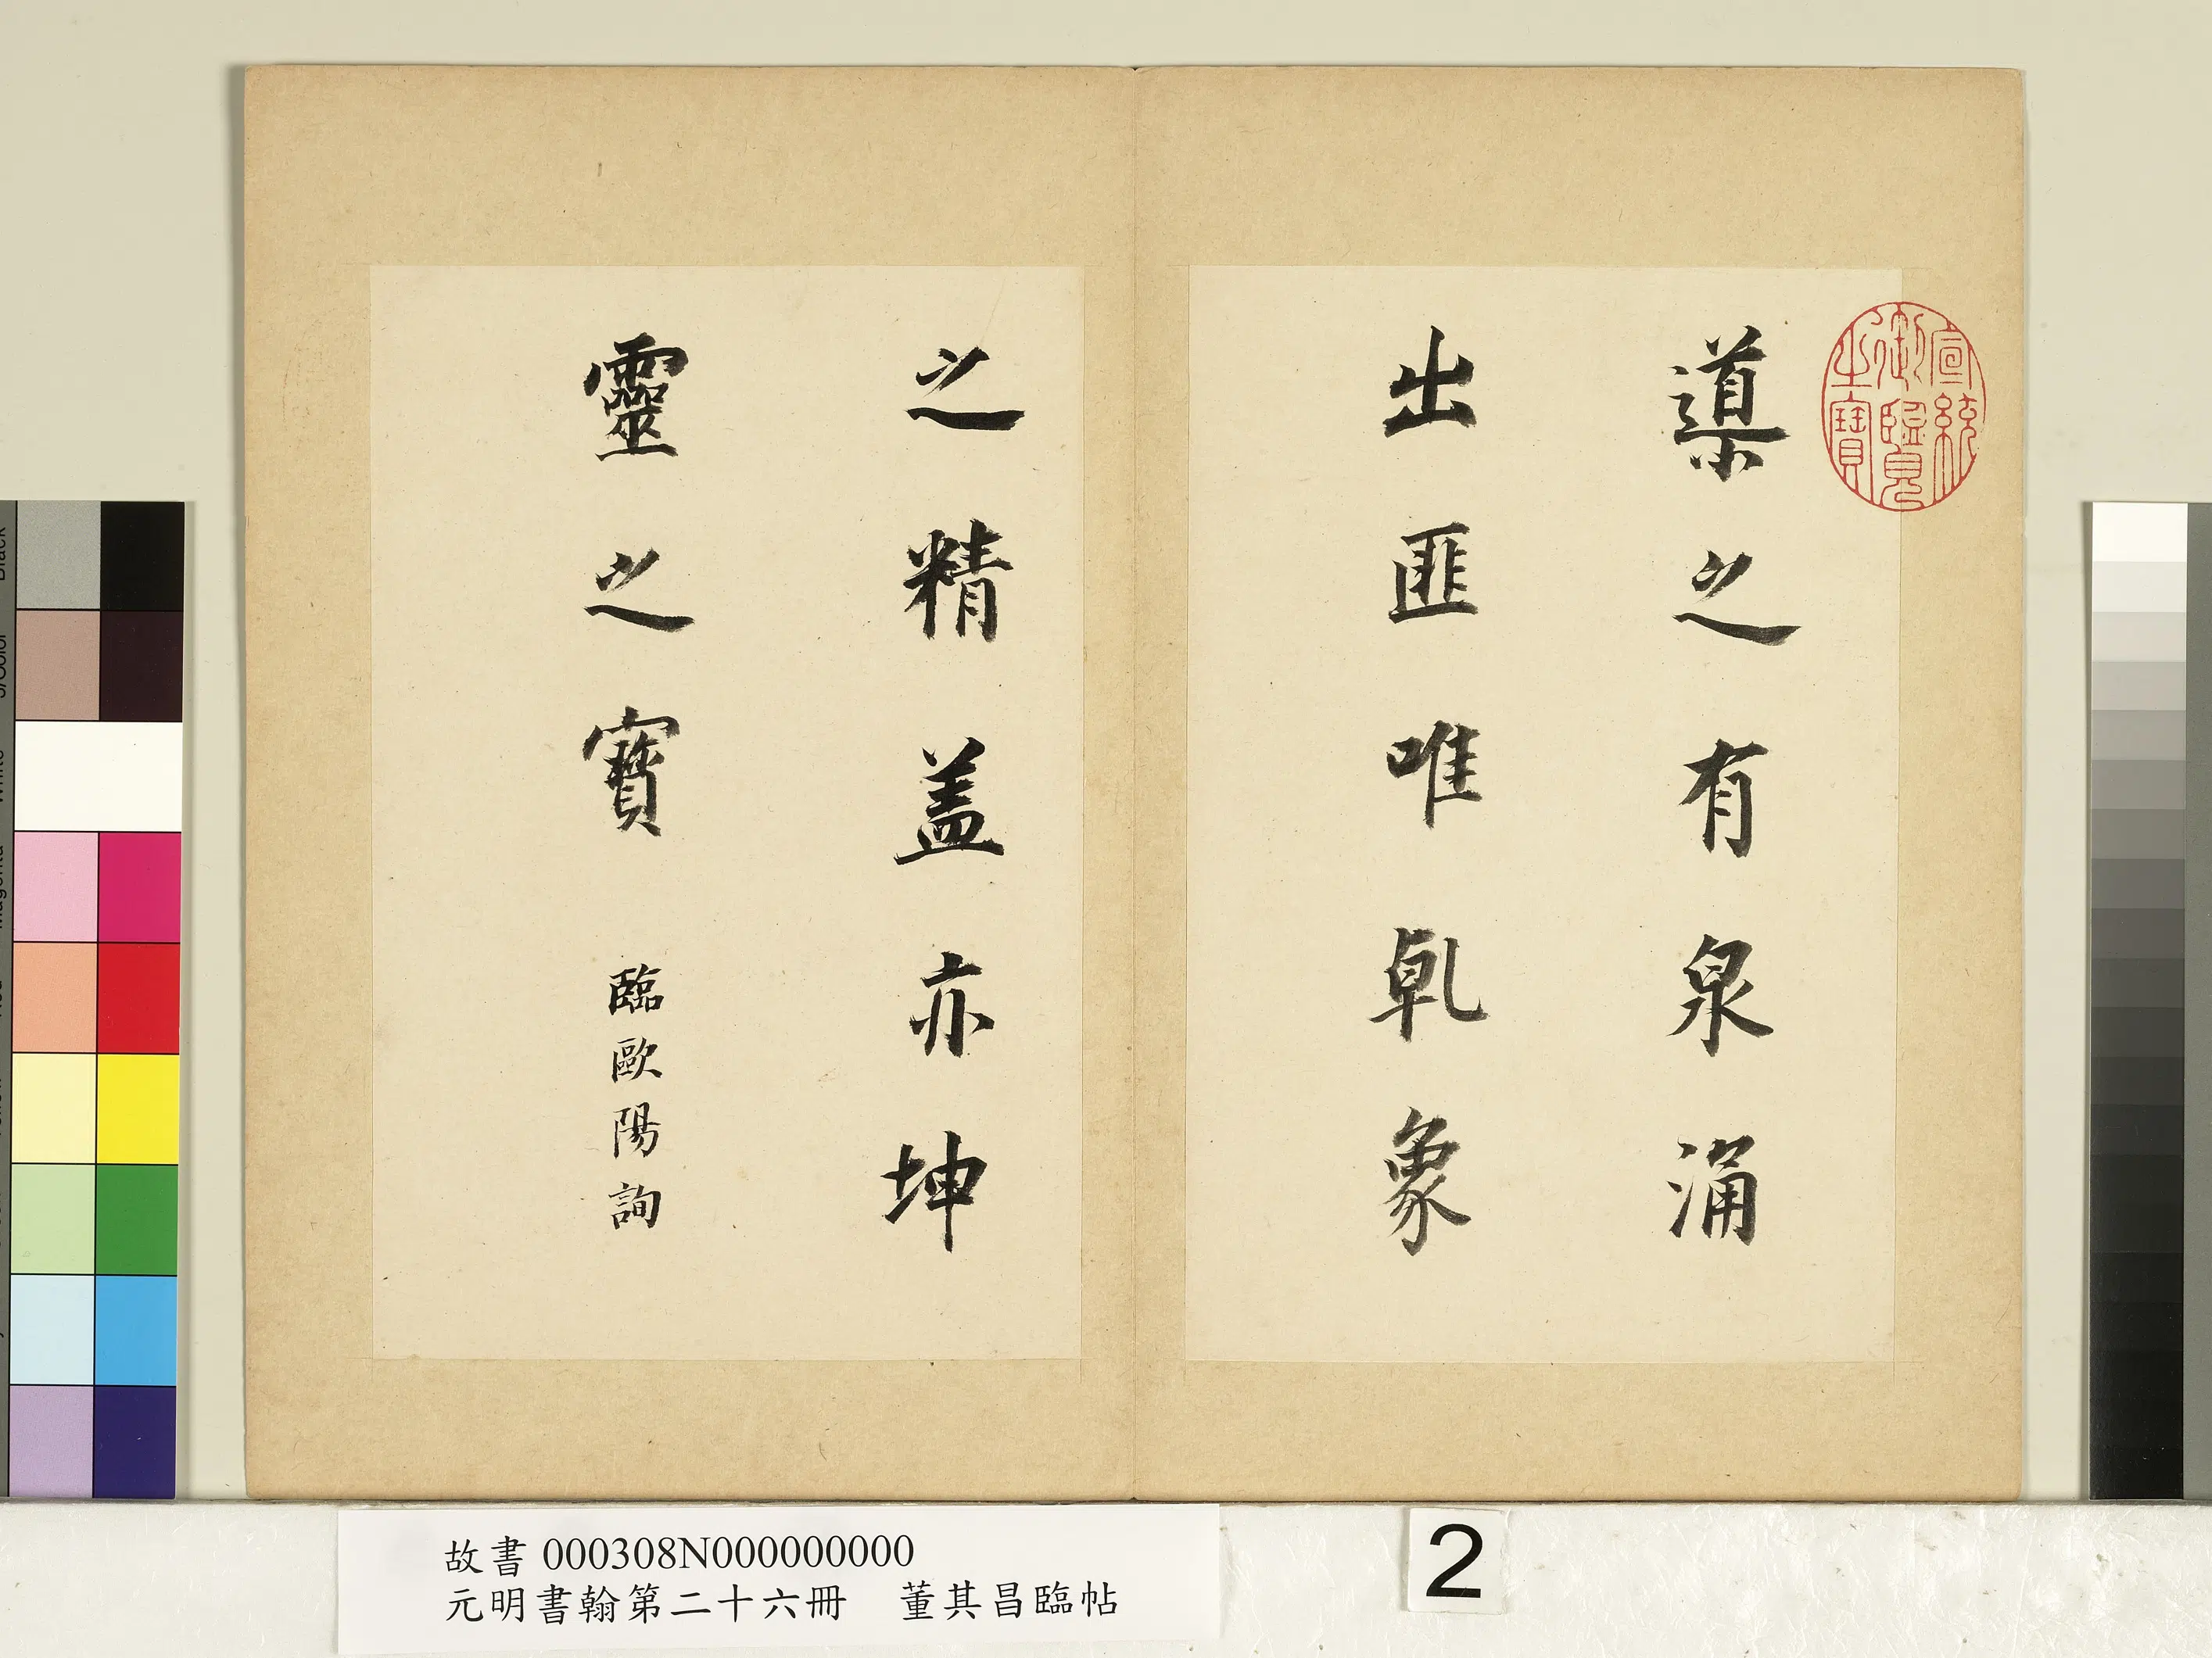 導之有泉涌
出匪唯乹象
之精盖亦坤
靈之寶 臨歐陽詢
宣統
御覽
之寶
故書 000308N000000000
元明書翰第二十六冊 董其昌臨帖
2